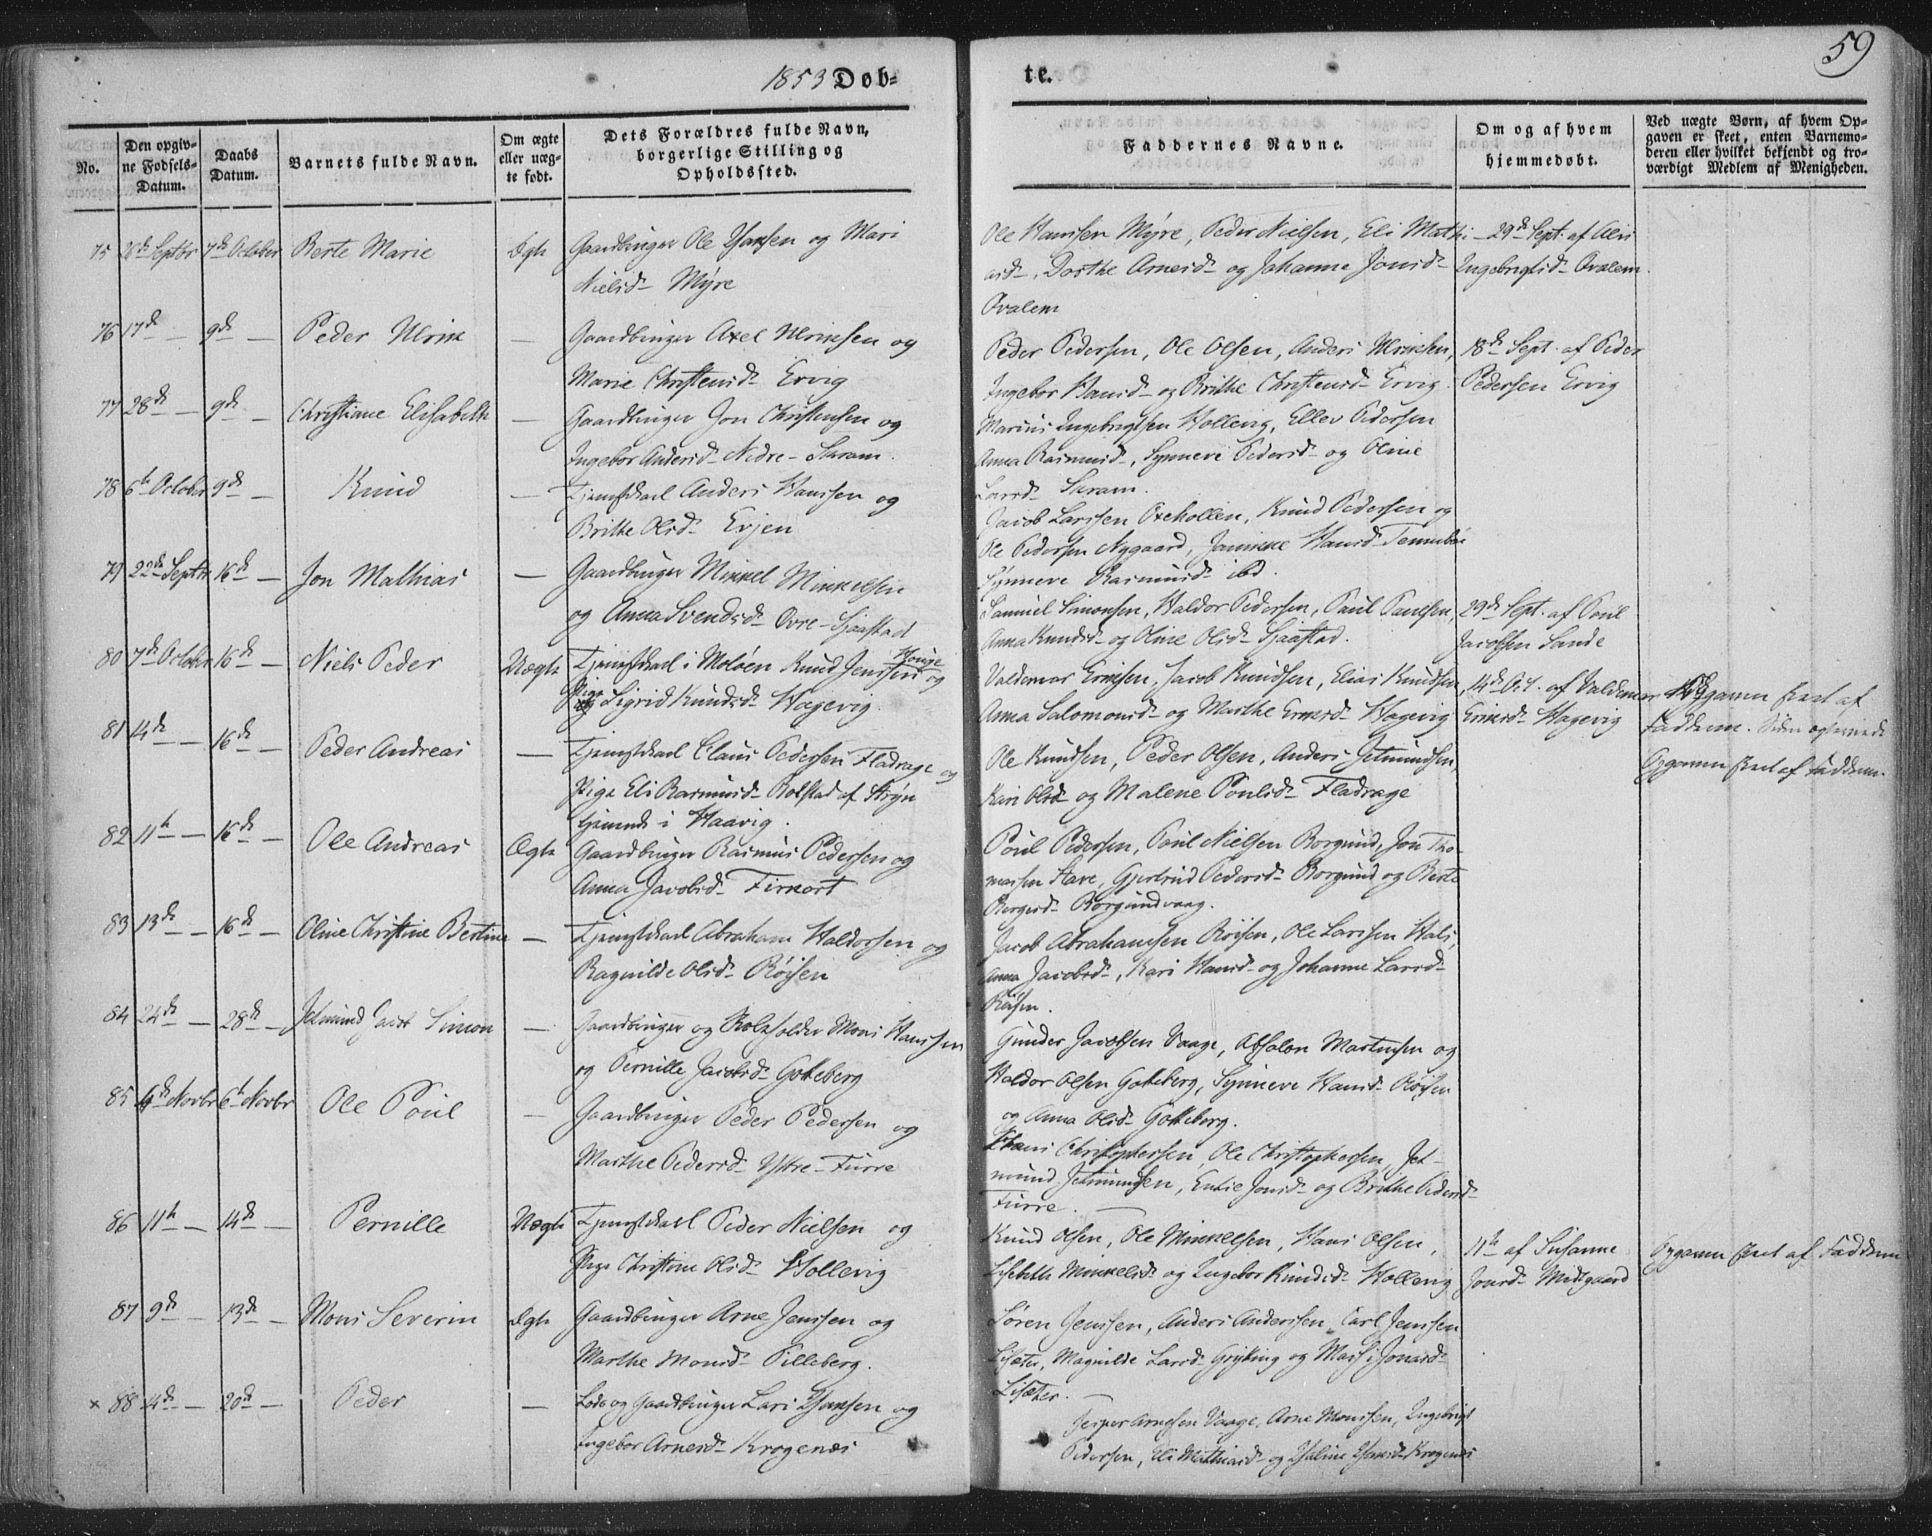 1853 Døb-
te.
59
No.
Den opgivne Fødsels-Datum.
Daabs Datum.
Barnets fulde Navn.
Om ægte eller uægte født.
Dets Forældres fulde Navn, borgerlige Stilling og Opholdssted.
Faddernes Navne.
Om og af hvem hjemmedøbt.
Ved uægte Børn, af hvem Opgaven er skeet, enten Barnemoderen eller hvilket bekjendt og troværdigt Medlem af Menigheden.
75 26de Septbr 7de October Berte Marie Ægte Gaardbruger Ole Hansen og Mari
Nielsd- Myre
Ole Hanssen Myre, Peder Nielsen, Eli Mathi-
asd-, Dorthe Arnesd- og Johanne Jonsd-
Ovalem
29de Sept. af
Ingebrigtsd- Ovalem
76 17de - 9de - Peder Ulrik - Gaardbruger Axel Ulriksen og
Marie Christensd- Ervig
Peder Pedersen, Ole Olsen, Anders Ulriksen,
Ingebor Hansd- og Brithe Christensd- Ervig
18de Sept. af Peder
Pedersen Ervig
77 28de - 9de - Christiane Elisabeth - Gaardbruger Jon Christensen og
Ingebor Andersd- Nedre-
Marius Ingebrigtsen Hollevig, Ellev Pedersen
Anna Rasmusd-, Synneve Pedersd- og Oline
Larsd-
78 6te October 9de - Knud - Tjenestekarl Anders Hanssen og
Brithe Olsd- Ervjen
Jacob Larssen Oxehollen, Knud Pedersen og
Ole Pedersen Nygaard, Jannike Hansd-
Synneve Rasmusd- ibd.
79 22de Septbr 16de - Jon Mathias - Gaardbruger Mikkel Mikkelsen
og Anna Svendsd- Øvre-Sjaastad
Samuel Simonsen, Haldor Pedersen, Paul Paulsen,
Anna Knudsd- og Oline Olsd- Sjaastad.
29de Sept. af Poul
Jacobsen Sande
80 7de October 16de - Niels Peder Uægte Tjenestekarl i Moldøen Knud Jenssen og
Pige Sigrid Knudsd- Hagevig.
Valdemar Eriksen, Jacob Knudsen, Elias Knudsen,
Anna Salomonsd- og Marthe Eriksd- Hagevig
14de Oct. af Valdemar
Eriksd- Hagevig
Opgaven skeet af
Fadderne.
81 14de - 16de - Peder Andreas - Tjenestekarl Claus Pedersen Fladrage og
Pige Eli Rasmusd- Rolstad af Stryn
tjenende i Haavig.
Ole Knudsen, Peder Olsen, Anders Jetmundsen,
Kari Olsd- og Malene Poulsd- Fladrage
Opgaven skeet af Faddern.
82 11te - 16de - Ole Andreas Ægte Gaardbruger Rasmus Pedersen og
Anna Jacobsd-
Poul Pedersen, Paul Nielsen Borgund, Jon Tho-
massen Stave, Gjertrud Pedersd- Borgund og Berte
Borgundvaag.
83 13de - 16de - Oline Christine Bertine - Tjenestekarl Abraham Haldorsen og
Ragnilde Olsd- Røisen
Jacob Abrahamsen Røisen, Ole Larssen Hals,
Anna Jacobsd-, Kari Hansd- og Johanne Larsd-
Røisen.
84 24de - 28de - Jetmund Simon - Gaardbruger og Mons Hanssen
og Pernille Jacobsd- Gotteberg
Gunder Jacobsen Vaage, Absalon Martinsen og
Haldor Olsen Gotteberg, Synneve Hansd- Røisen
og Anna Olsd- Gotteberg.
85 Novbr 6te Novbr Ole Poul - Gaardbruger Peder Pedersen og
Marthe Pedersd- Ystre-Furre
Hans Christophersen, Ole Christophersen, Jet-
mund Jetmundsen, Jonsd- og Brithe Pedersd-
Furre.
86 11te - 14de - Pernille Uægte Tjenestekarl Peder Nielsen og
Pige Christine Olsd- Hollevig
Knud Olsen, Ole Mikkelsen, Hans Olsen,
Lisebeth Mikkelsd- og Ingebor Knudsd- Hollevig
11te af Susanne
Jonsd- Midtgaard
Opgaven skeet af Faddern
87 9de - 13de - Mons Severin Ægte Gaardbruger Arne Jenssen og
Marthe Monsd- Pilleberg.
Søren Jenssen, Anders Anderssen, Carl Jenssen
Lisæter, Magnilde Larsd- og Jonasd-
Lisæter.
× 88 14de - 20de - Peder - Lods og Gaardbruger Lars Hansen og
Ingebor Arnesd- Krogenæs
Jesper Arnesen Vaage, Arne Monssen, Ingebrigt
Pedersen, Eli Mathiasd- og Hansd- Krogenæs